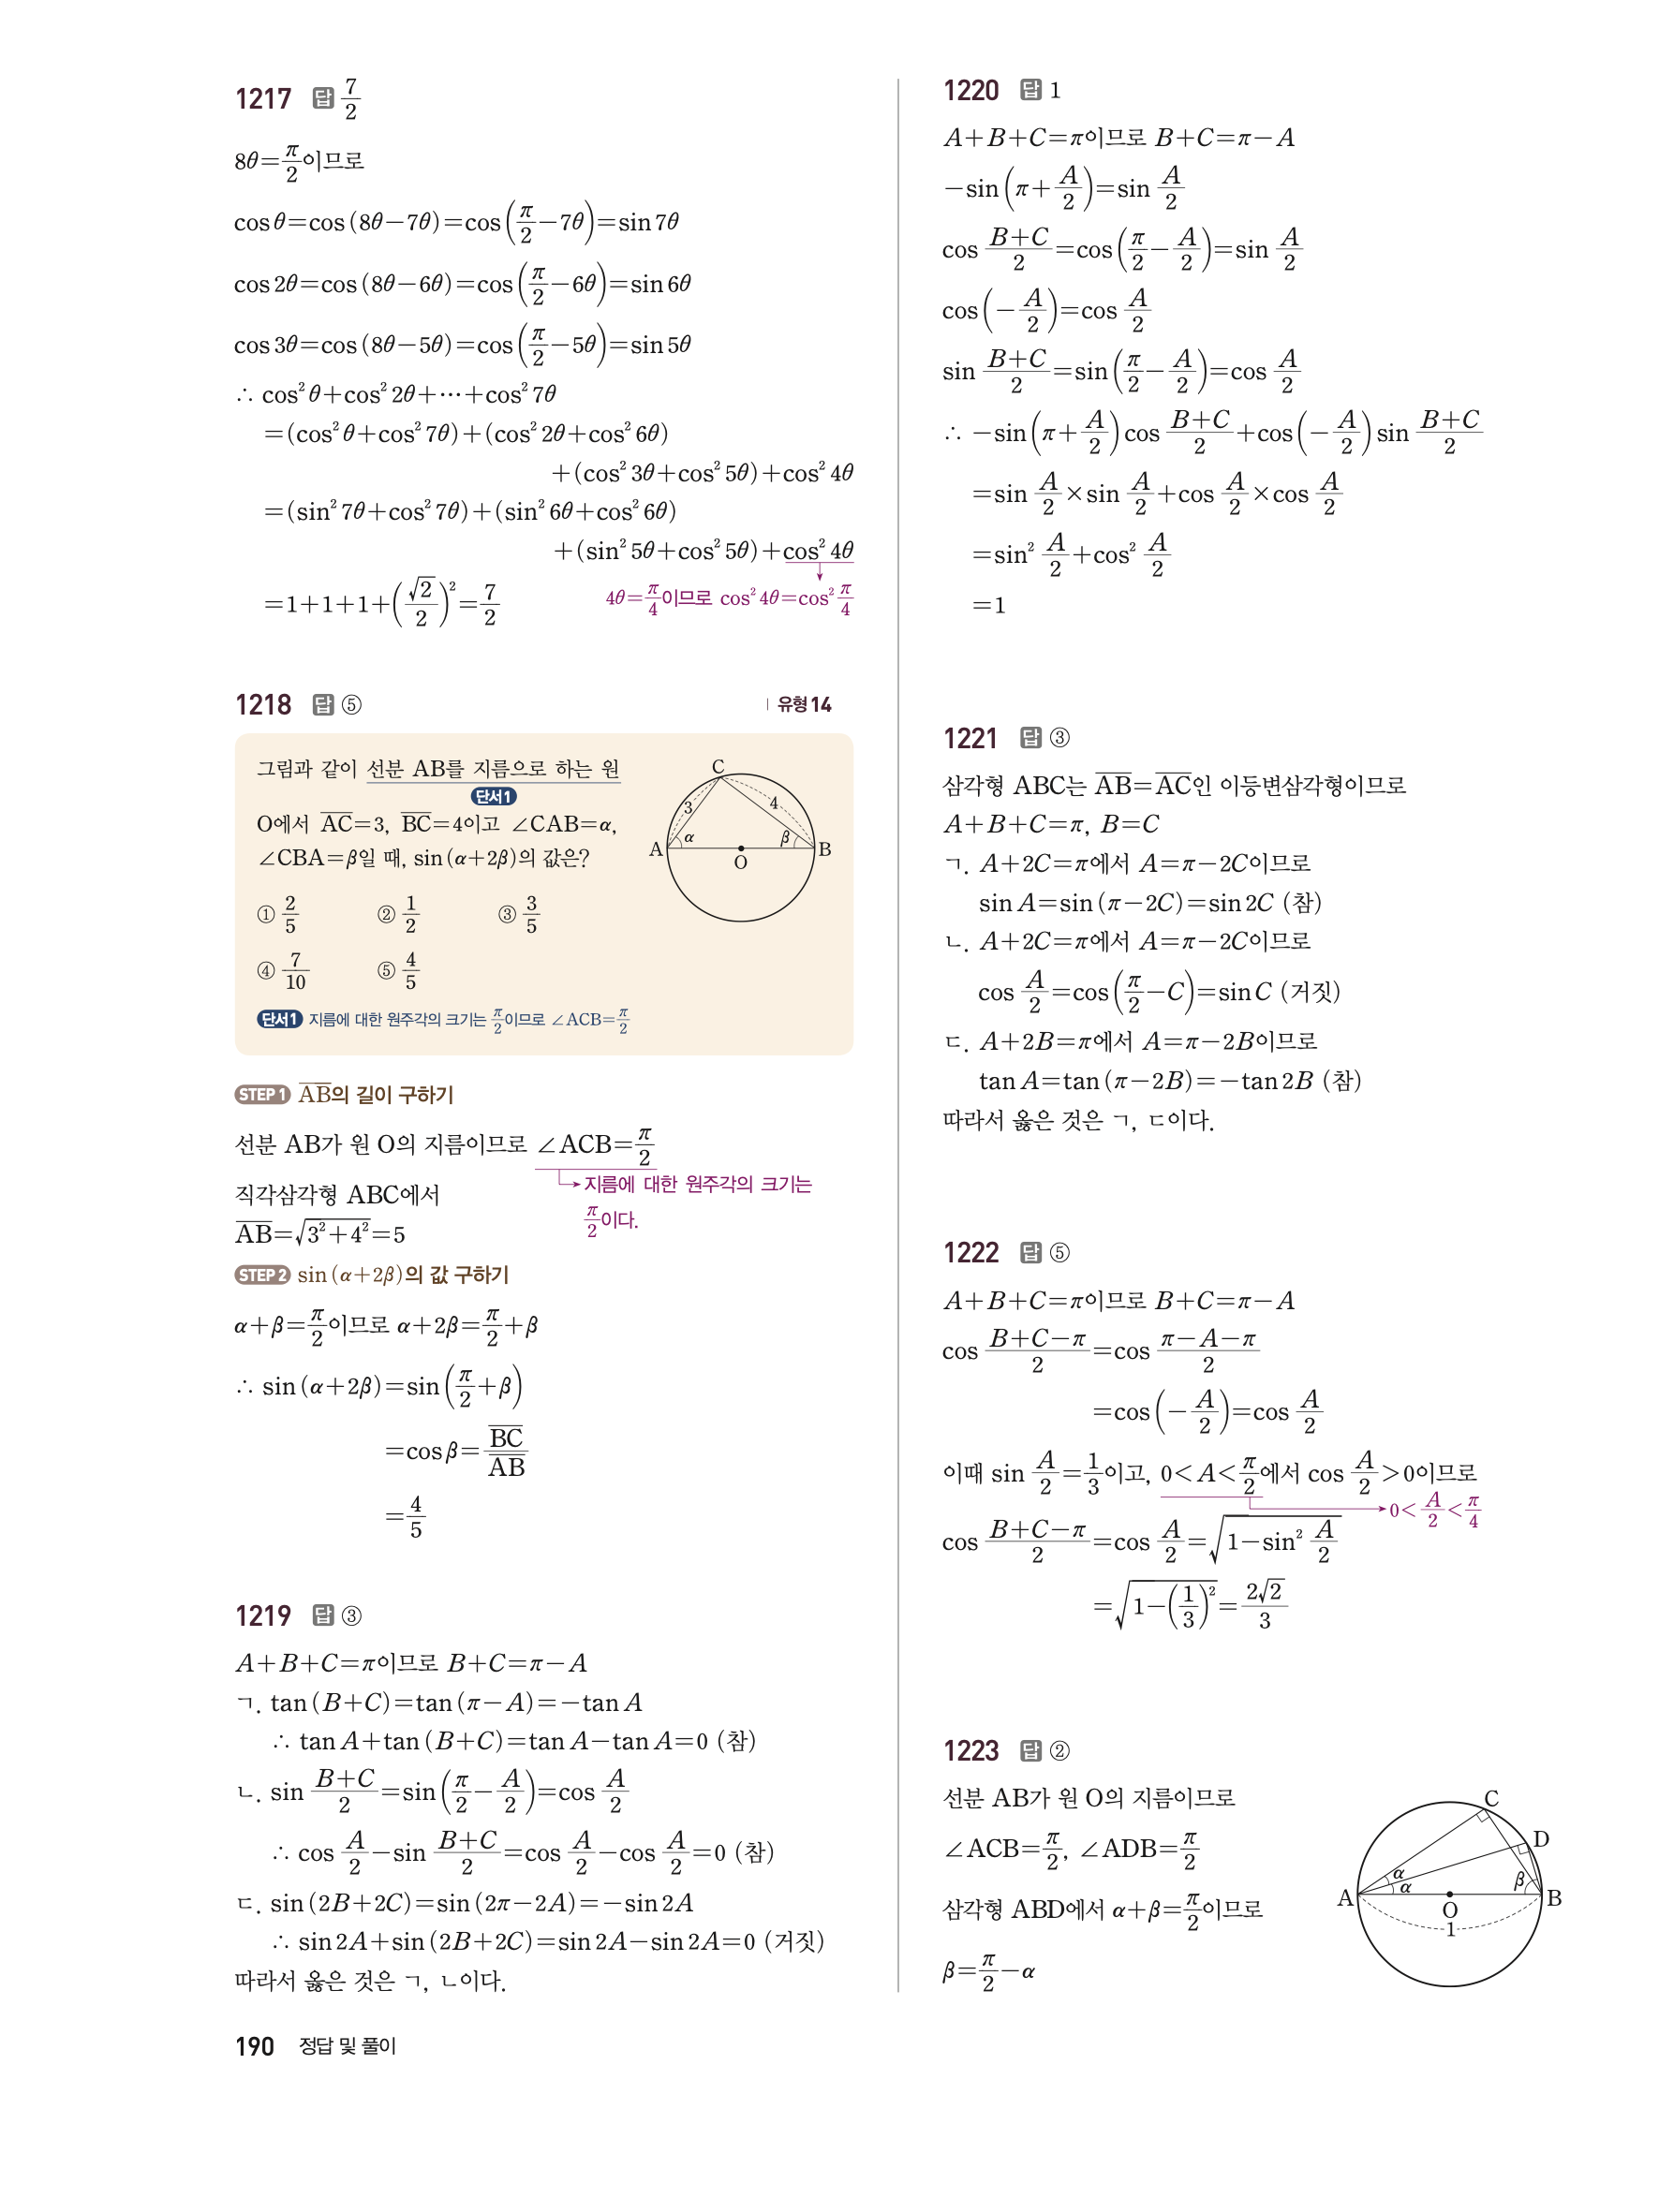 1217 답 7/2
8θ=π/2이므로
cosθ=cos(8θ-7θ)=cos(π/2-7θ)=sin7θ
cos2θ=cos(8θ-6θ)=cos(π/2-6θ)=sin6θ
cos3θ=cos(8θ-5θ)=cos(π/2-5θ)=sin5θ
∴ cos²θ+cos²2θ+⋯+cos²7θ
=(cos²θ+cos²7θ)+(cos²2θ+cos²6θ)
+(cos²3θ+cos²5θ)+cos²4θ
=(sin²7θ+cos²7θ)+(sin²6θ+cos²6θ)
+(sin²5θ+cos²5θ)+cos²4θ
=1+1+1+(√2/2)²=7/2
4θ=π/4이므로 cos²4θ=cos²π/4
1218 답 ⑤ 유형14
그림과 같이 선분 AB를 지름으로 하는 원
단서1
O에서 A̅C̅=3, B̅C̅=4이고 ∠CAB=α,
∠CBA=β일 때, sin(α+2β)의 값은?
① 2/5 ② 1/2 ③ 3/5
④ 7/10 ⑤ 4/5
C
3 4
A α β B
O
단서1 지름에 대한 원주각의 크기는 π/2이므로 ∠ACB=π/2
STEP1 A̅B̅의 길이 구하기
선분 AB가 원 O의 지름이므로 ∠ACB=π/2
지름에 대한 원주각의 크기는
π/2이다.
직각삼각형 ABC에서
A̅B̅=√(3²+4²)=5
STEP2 sin(α+2β)의 값 구하기
α+β=π/2이므로 α+2β=π/2+β
∴ sin(α+2β)=sin(π/2+β)
=cosβ=B̅C̅/A̅B̅
=4/5
1219 답 ③
A+B+C=π이므로 B+C=π-A
ㄱ. tan(B+C)=tan(π-A)=-tanA
∴ tanA+tan(B+C)=tanA-tanA=0 (참)
ㄴ. sin (B+C)/2=sin(π/2-A/2)=cos A/2
∴ cos A/2-sin (B+C)/2=cos A/2-cos A/2=0 (참)
ㄷ. sin(2B+2C)=sin(2π-2A)=-sin2A
∴ sin2A+sin(2B+2C)=sin2A-sin2A=0 (거짓)
따라서 옳은 것은 ㄱ, ㄴ이다.
190 정답 및 풀이
1220 답 1
A+B+C=π이므로 B+C=π-A
-sin(π+A/2)=sin A/2
cos (B+C)/2=cos(π/2-A/2)=sin A/2
cos(-A/2)=cos A/2
sin (B+C)/2=sin(π/2-A/2)=cos A/2
∴ -sin(π+A/2)cos (B+C)/2+cos(-A/2)sin (B+C)/2
=sin A/2×sin A/2+cos A/2×cos A/2
=sin² A/2+cos² A/2
=1
1221 답 ③
삼각형 ABC는 A̅B̅=A̅C̅인 이등변삼각형이므로
A+B+C=π, B=C
ㄱ. A+2C=π에서 A=π-2C이므로
sinA=sin(π-2C)=sin2C (참)
ㄴ. A+2C=π에서 A=π-2C이므로
cos A/2=cos(π/2-C)=sinC (거짓)
ㄷ. A+2B=π에서 A=π-2B이므로
tanA=tan(π-2B)=-tan2B (참)
따라서 옳은 것은 ㄱ, ㄷ이다.
1222 답 ⑤
A+B+C=π이므로 B+C=π-A
cos (B+C-π)/2=cos (π-A-π)/2
=cos(-A/2)=cos A/2
이때 sin A/2=1/3이고, 0<A<π/2에서 cos A/2>0이므로
0<A/2<π/4
cos (B+C-π)/2=cos A/2=√(1-sin² A/2)
=√(1-(1/3)²)=2√2/3
1223 답 ②
선분 AB가 원 O의 지름이므로
∠ACB=π/2, ∠ADB=π/2
삼각형 ABD에서 α+β=π/2이므로
β=π/2-α
C
D
α
α β
A O B
1